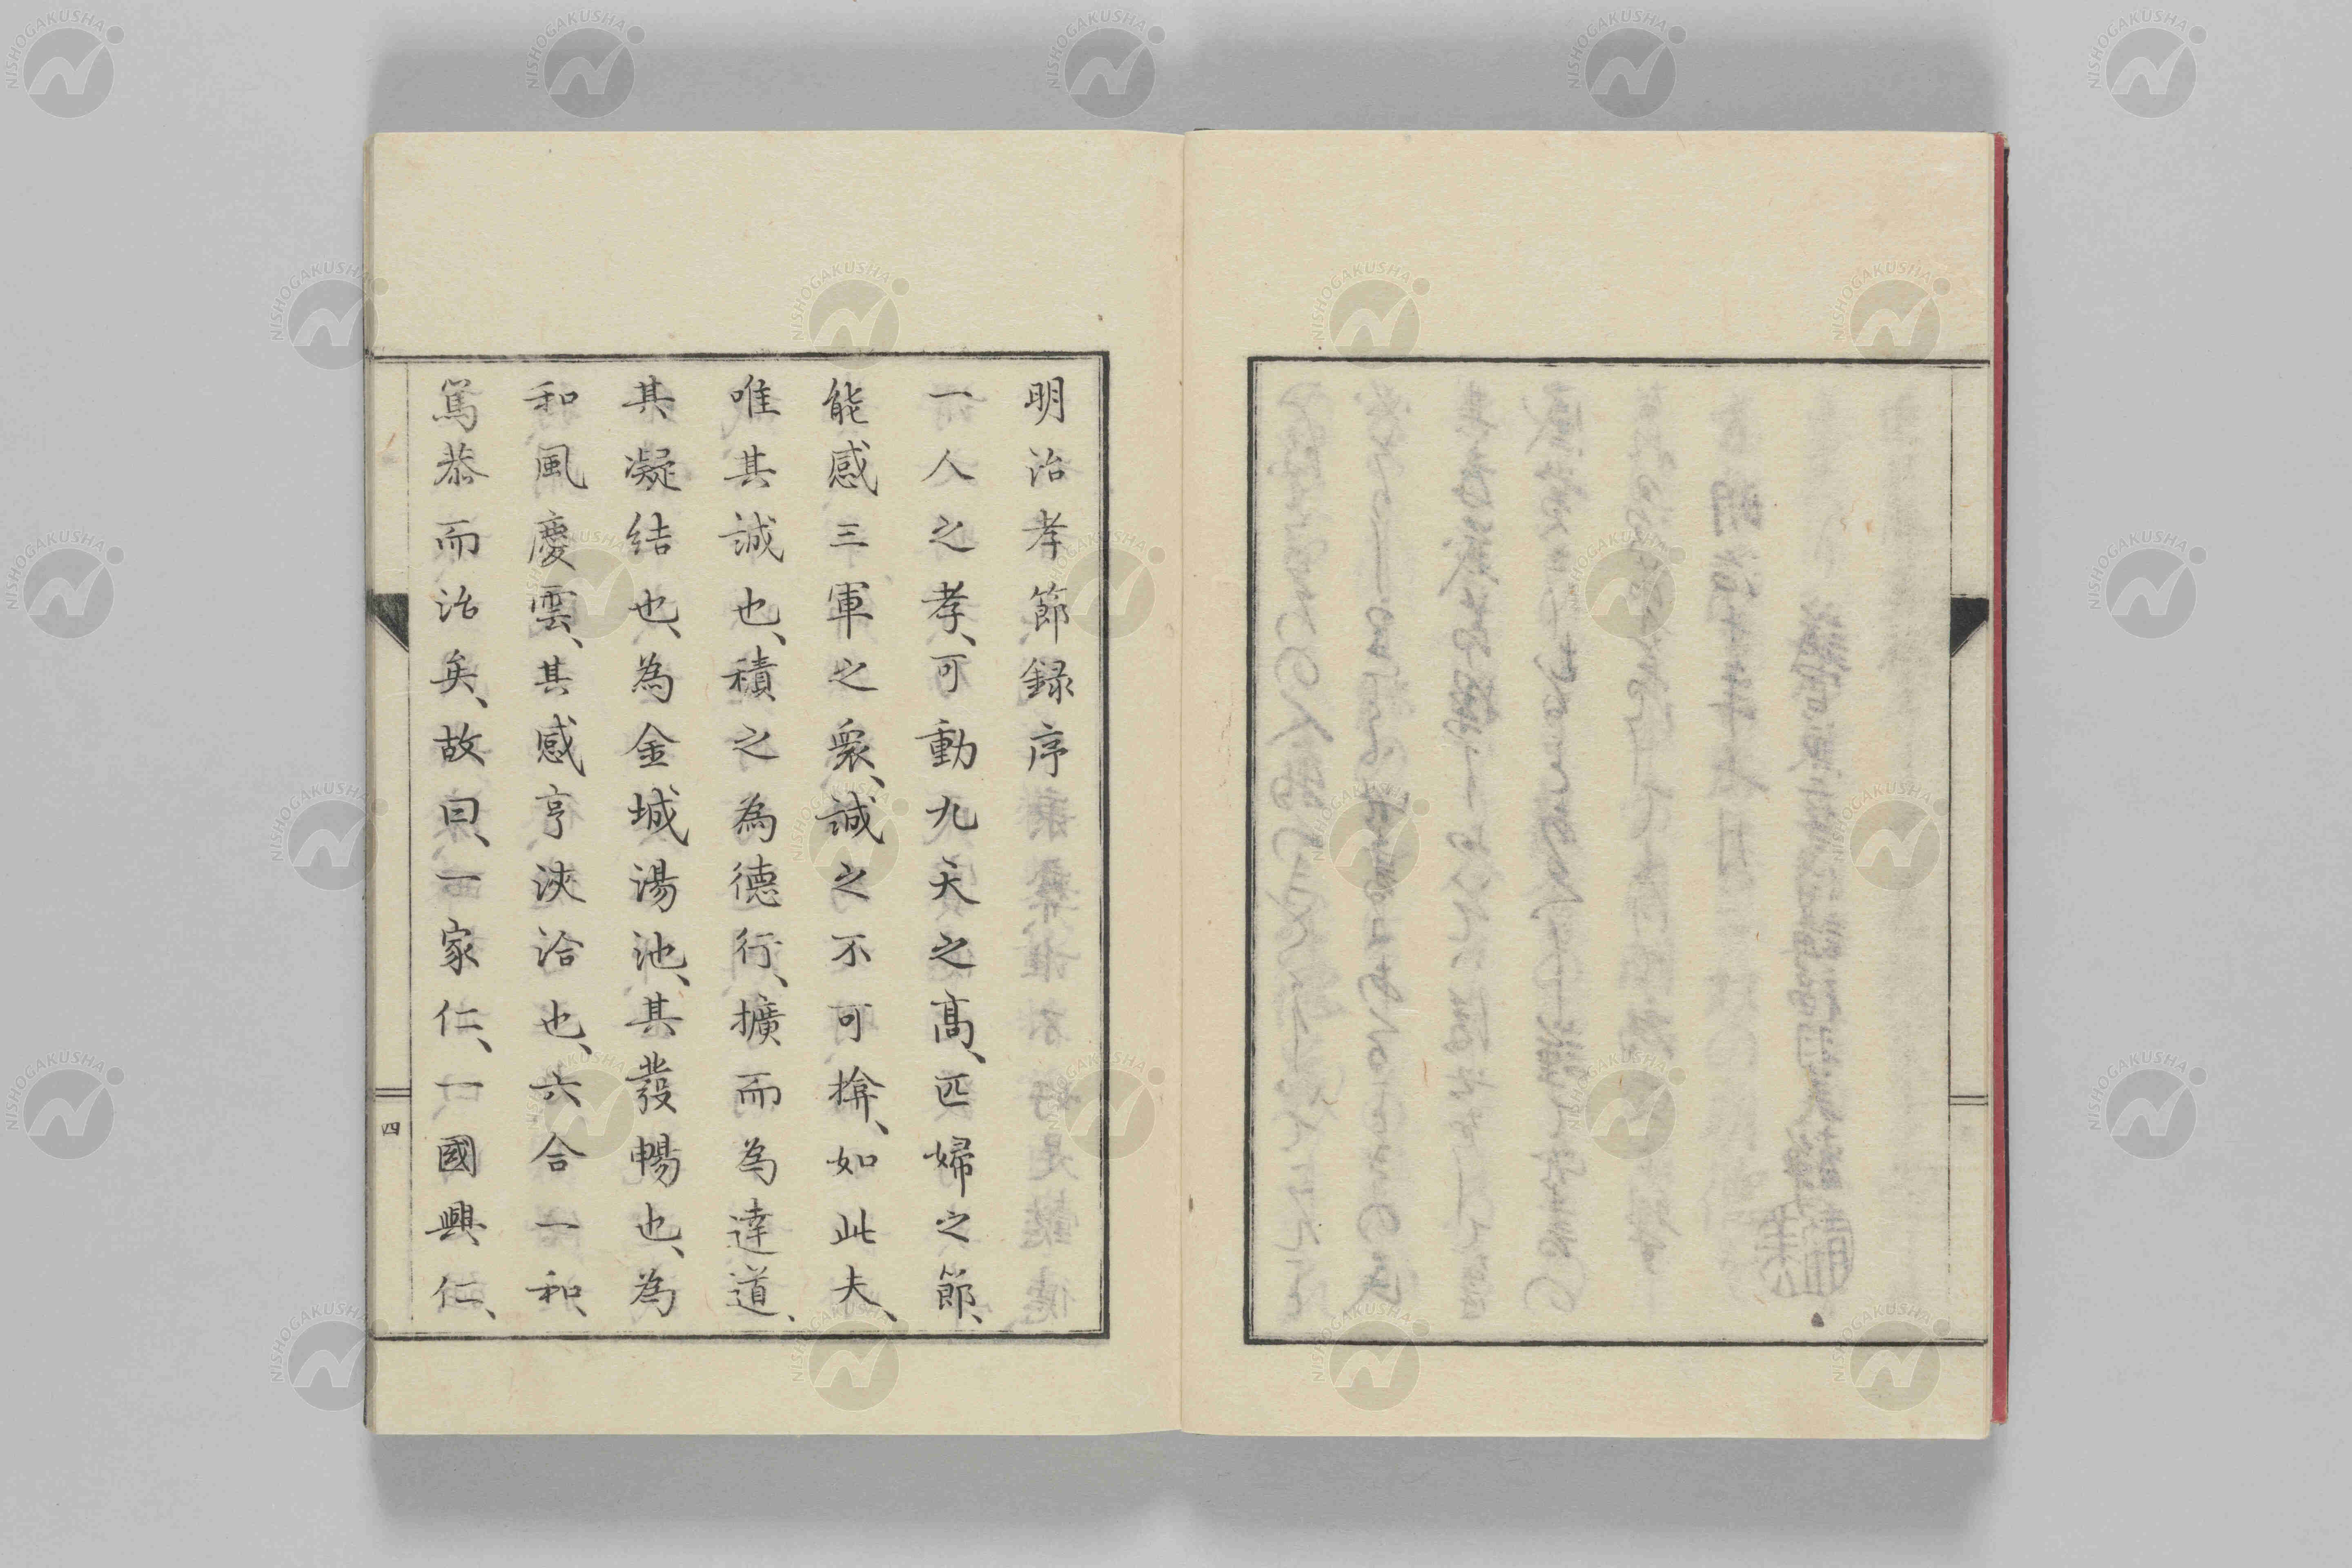 明治孝節録序
一人之孝、可動九天之高、匹婦之節、
能感三軍之衆、誠之不可揜、如此夫、
唯其誠也、積之為德行、擴而為達道、
其凝結也、為金城湯池、其發暢也、為
和風慶雲、其感亨浹洽也、六合一和、
篤恭而治矣、故曰、一家仁、一國興仁、
四
NISHOGAKUSHA